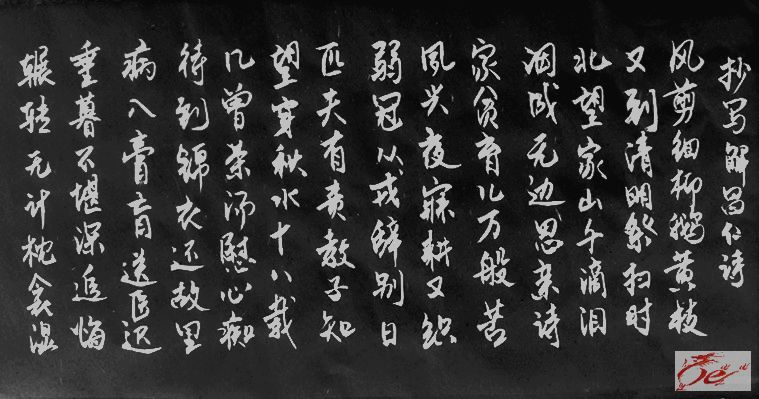 抄写解昌仁诗
风剪细柳鹅黄枝
又到清明祭扫时
北望家山千滴泪
洇成无边思亲诗
家贫育儿万般苦
夙兴夜寐耕又织
弱冠从戎辞别日
匹夫有责教子知
望穿秋水十八载
几曾茶汤慰心痴
待到锦衣还故里
病入膏肓送医迟
垂暮不堪深追悔
辗转无计枕衾湿